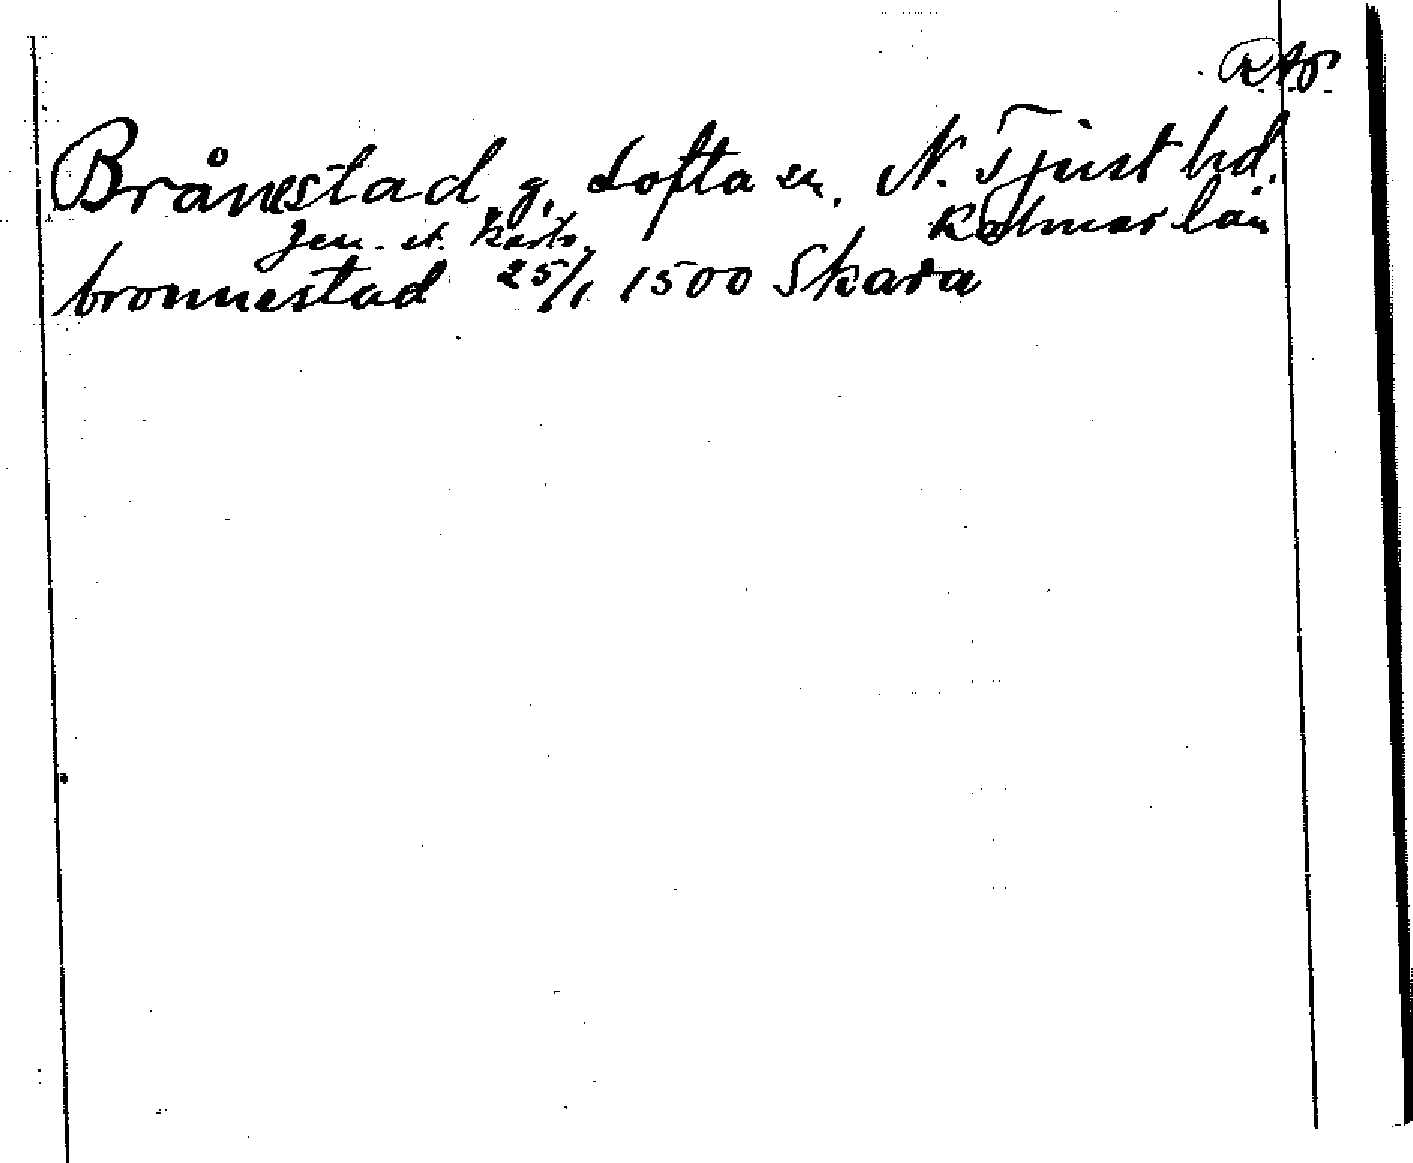 RAp
Brånestad, g, Lofta sn. N. Tjust hd.
Gen. st. karta. Kalmar län
bronnestad 25/1 1500 Skara